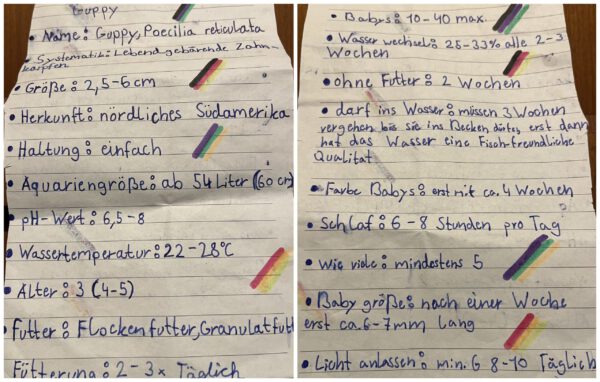 Guppy
• Name: Guppy, Poecilia reticulata
• Systematik: Lebendgebärende Zahn-
karpfen
• Größe: 2,5-6cm
• Herkunft: nördliches Südamerika
• Haltung: einfach
• Aquariengröße: ab 54 Liter (60 cm)
• pH-Wert: 6,5-8
• Wassertemperatur: 22-28°C
• Alter: 3 (4-5)
• Futter: Flockenfutter, Granulatfutt
Fütterung: 2-3x Täglich
• Babys: 10-40 max.
• Wasser wechsel: 25-33% alle 2-3
Wochen
• ohne Futter: 2 Wochen
• darf ins Wasser: müssen 3 Wochen
vergehen bis sie ins Becken dürfen, erst dann
hat das Wasser eine Fischfreundliche
Qualität
• Farbe Babys: erst mit ca. 4 Wochen
• Schlaf: 6-8 Stunden pro Tag
• Wie viele: mindestens 5
• Baby größe: nach einer Woche
erst ca. 6-7mm lang
• Licht anlassen: min. 6 8-10 Täglich